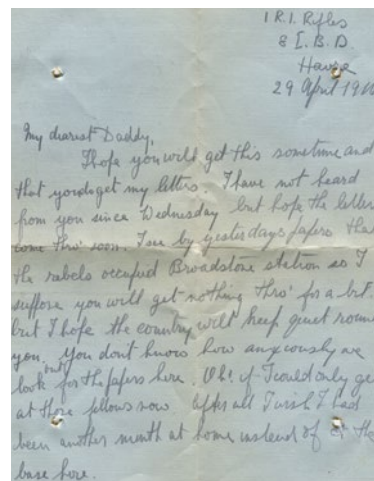 1 R.I. Rifles
8 I.B.D.
Havre
29 April 19
My dearest Daddy,
I hope you will get this sometime and
that you do get my letters. I have not heard
from you since Wednesday but hope the letter
come thro' soon. I see by yesterdays papers tha
the rebels occupied Broadstone station so I
suppose you will get nothing thro' for a bit.
but I hope the country will keep quiet roun
you. You don't know how anxiously we
look out for the papers here. Oh! if I could only ge
at those fellows now. After all I wish I had
been another month at home instead of at the
base here.